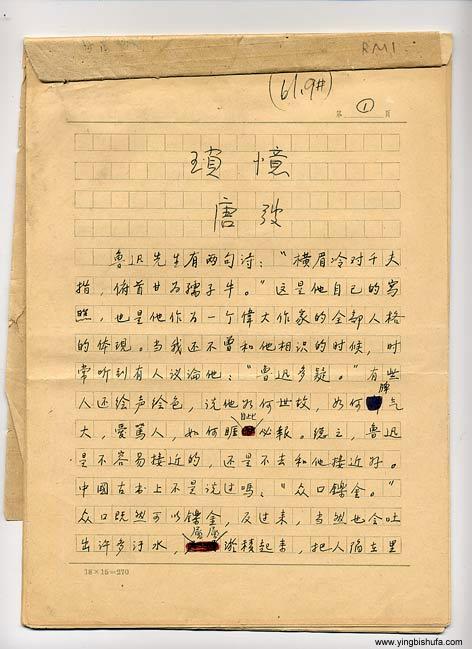 RM1
(61.9#)
第 ① 頁
瑣憶
唐弢
魯迅先生有两句诗：“横眉冷对千夫
指，俯首甘为孺子牛。”这是他自己的写
照，也是他作为一个偉大作家的全部人格
的体現。当我还不曾和他相识的时候，时
常听到有人议论他：“魯迅多疑。”有些
人还绘声绘色，说他如何世故，如何脾气
大，愛罵人，如何睚眦必報。總之，魯迅
是不容易接近的，还是不去和他接近好。
中國古书上不是说过嗎：“众口鑠金。”
众口既然可以鑠金，反过来，当然也会吐
出许多汙水，屢屢淤積起来，把人陷在里
18×15=270
www.yingbishufa.com